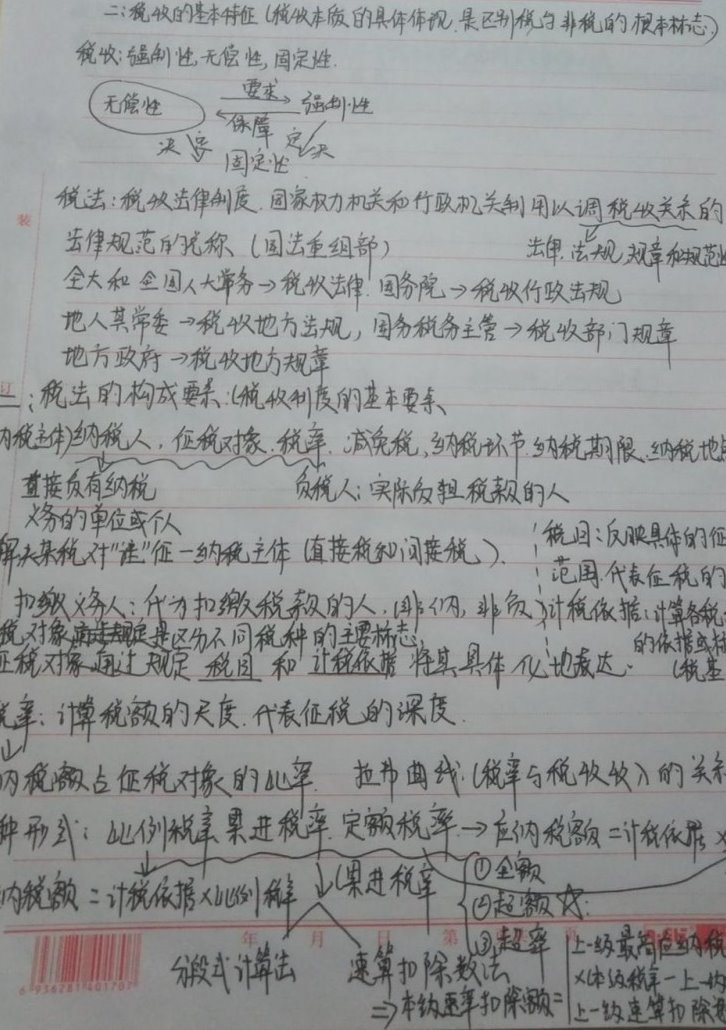 二:税收的基本特征(税收本质的具体体现,是区别税与非税的根本标志)
税收:强制性,无偿性,固定性.
无偿性 要求 强制性
保障
决定 固定性 决定
税法:税收法律制度.国家权力机关和行政机关制用以调税收关系的
法律规范的总称(国法重组部) 法律.法规.规章和规范性
全大和全国人大常务→税收法律.国务院→税收行政法规
地人其常委→税收地方法规,国务税务主管→税收部门规章
地方政府→税收地方规章
二:税法的构成要素:(税收制度的基本要素
纳税主体)纳税人,征税对象.税率.减免税,纳税环节.纳税期限.纳税地
直接负有纳税 负税人:实际负担税款的人
义务的单位或个人
解决某税对"谁"征一纳税主体(直接税和间接税). 税目:反映具体的征
范围.代表征税的
扣缴义务人:代为扣缴税款的人.(非纳,非负) 计税依据:计算各税
税对象 是区分不同税种的主要标志, 的依据或标
征税对象通过规定 税目 和 计税依据 将其具体化地表达. (税基
税率:计算税额的尺度.代表征税的深度.
纳税额占征税对象的比率. 拉弗曲线.(税率与税收收入的关系
种形式:比例税率.累进税率.定额税率.→应纳税额=计税依据×
纳税额=计税依据×比例税率 (累进税率 ①全额
②超额
③超率
年 月 日 第
分段式计算法 速算扣除数法 上一级最高应纳税
⇒本级速算扣除额= ×(本级税率-上一
上一级速算扣除
装
订
6 936281 401707